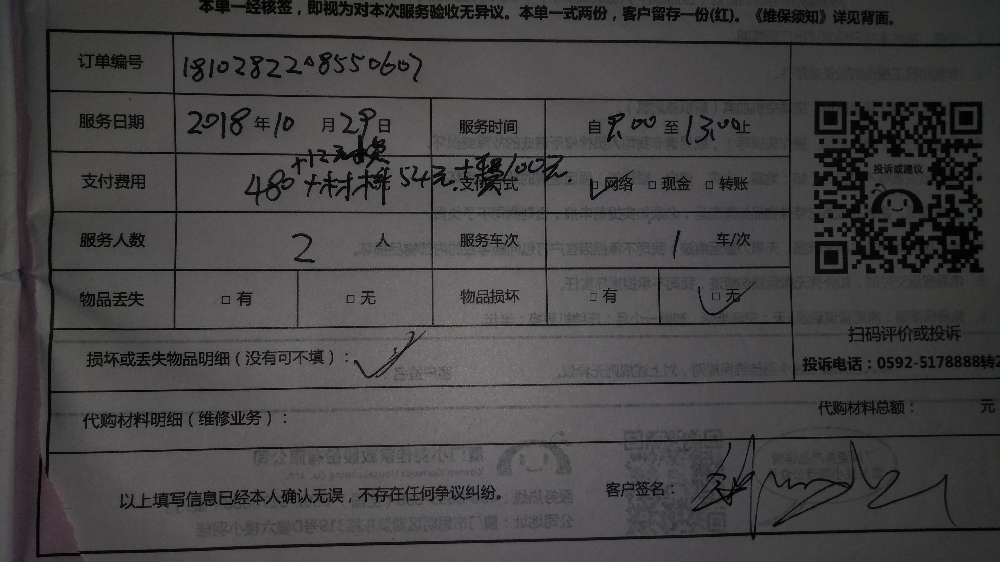 本单一经核签，即视为对本次服务验收无异议。本单一式两份，客户留存一份(红)。《维保须知》详见背面。
订单编号 1810282208550607
服务日期 2018 年 10 月 29 日 服务时间 自 9.00 至 13.00 止
+12元
支付费用 480 +材料 54元.+ 100元. 支付方式 □网络 □现金 □转账
服务人数 2 人 服务车次 1 车/次
物品丢失 □有 □无 物品损坏 □有 □无
损坏或丢失物品明细（没有可不填）：
代购材料明细（维修业务）： 代购材料总额： 元
以上填写信息已经本人确认无误，不存在任何争议纠纷。 客户签名：
投诉或建议
扫码评价或投诉
投诉电话：0592-5178888转2